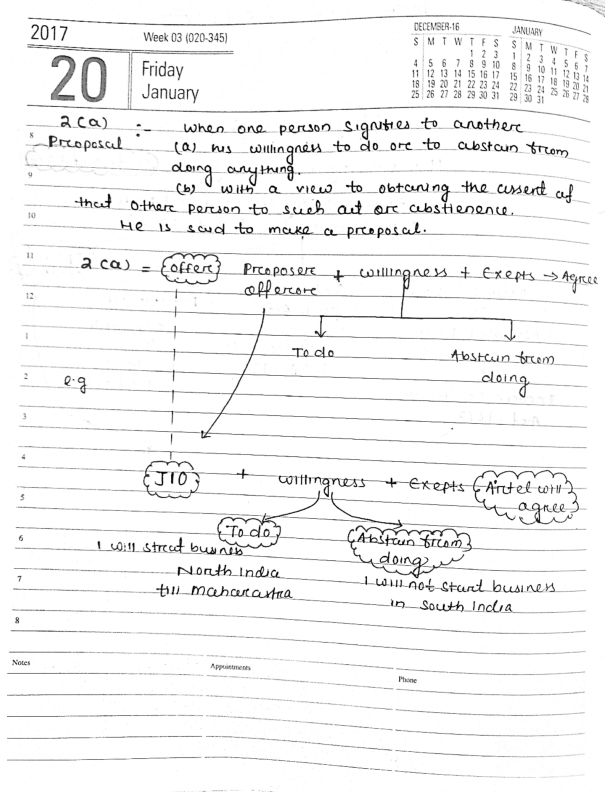 2017
Week 03 (020-345)
20
Friday
January
DECEMBER-16
S M T W T F S
1 2 3
4 5 6 7 8 9 10
11 12 13 14 15 16 17
18 19 20 21 22 23 24
25 26 27 28 29 30 31
JANUARY
S M T W T F S
1 2 3 4 5 6 7
8 9 10 11 12 13 14
15 16 17 18 19 20 21
22 23 24 25 26 27 28
29 30 31
2(a) :- when one person signifies to another
8 Proposal (a) his willingness to do or to abstain from
doing anything.
9 (b) with a view to obtaning the assent of
that other person to such act or abstienence.
10 He is said to make a proposal.
11 2(a) = offer Proposer + willingness + Exepts → Agree
offeror
12
1 To do Abstain from
doing
2 e.g
3
4
JIO + willingness + Exepts Airtel will
agree
5
To do Abstain from
doing
6 I will streat busines
North India I will not start business
7 till Maharastra in South India
8
Notes Appointments Phone